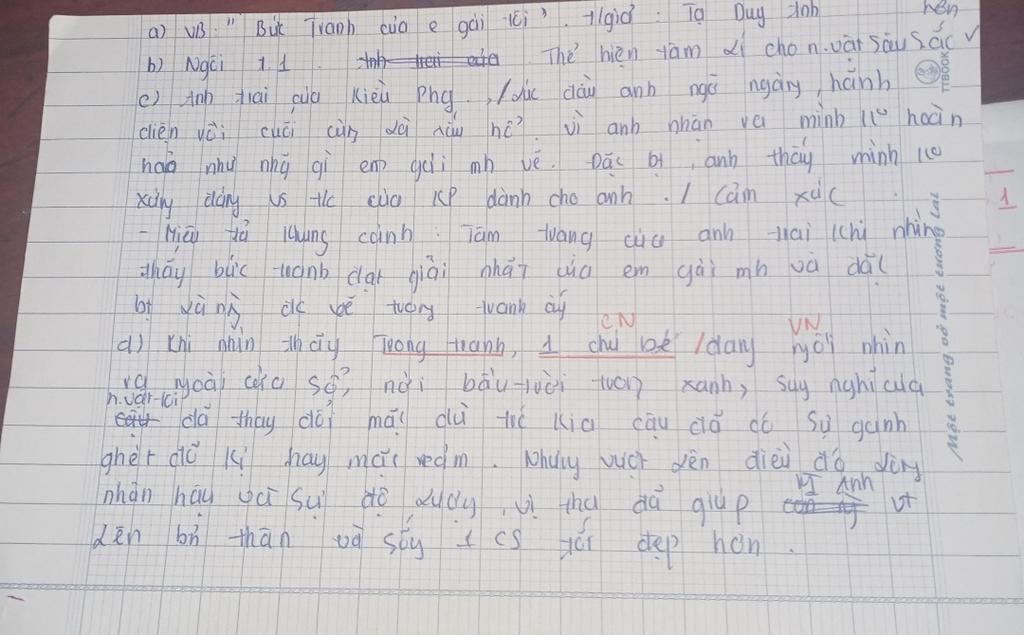 a) VB: "Bức Tranh của e gái tôi". T/giả: Tạ Duy Anh
hẹn
b) Ngôi T.1. Thể hiện tâm lí cho n.vật sâu sắc
c) Anh trai của Kiều Phg, lúc đầu anh ngỡ ngàng, hãnh
diện rồi cuối cùng là xấu hổ. Vì anh nhận ra mình ko hoàn
hảo như nhg gì em gái mh vẽ. Đặc bị, anh thấy mình ko
xứng đáng vs t/c của KP dành cho anh. / Cảm xúc
- Miêu tả khung cảnh: Tâm trạng của anh trai khi nhìn
thấy bức tranh đạt giải nhất của em gái mh và đặc
bị là mh đc vẽ trong tranh ấy
CN VN
d) Khi nhìn thấy trong tranh, 1 chú bé / đang ngồi nhìn
ra ngoài cửa sổ, nơi bầu trời trong xanh, suy nghĩ của
n.vật tôi
đã thay đổi mặc dù trc kia cậu đã có sự ganh
ghét đố kị hay mặc cảm. Nhưng vượt lên điều đó lòng
nhân hậu và sự độ lượng, vị tha đã giúp Anh vt
lên bản thân và sống 1 CS tốt đẹp hơn.
1
TIBOOK
Một trang vở một tương lai